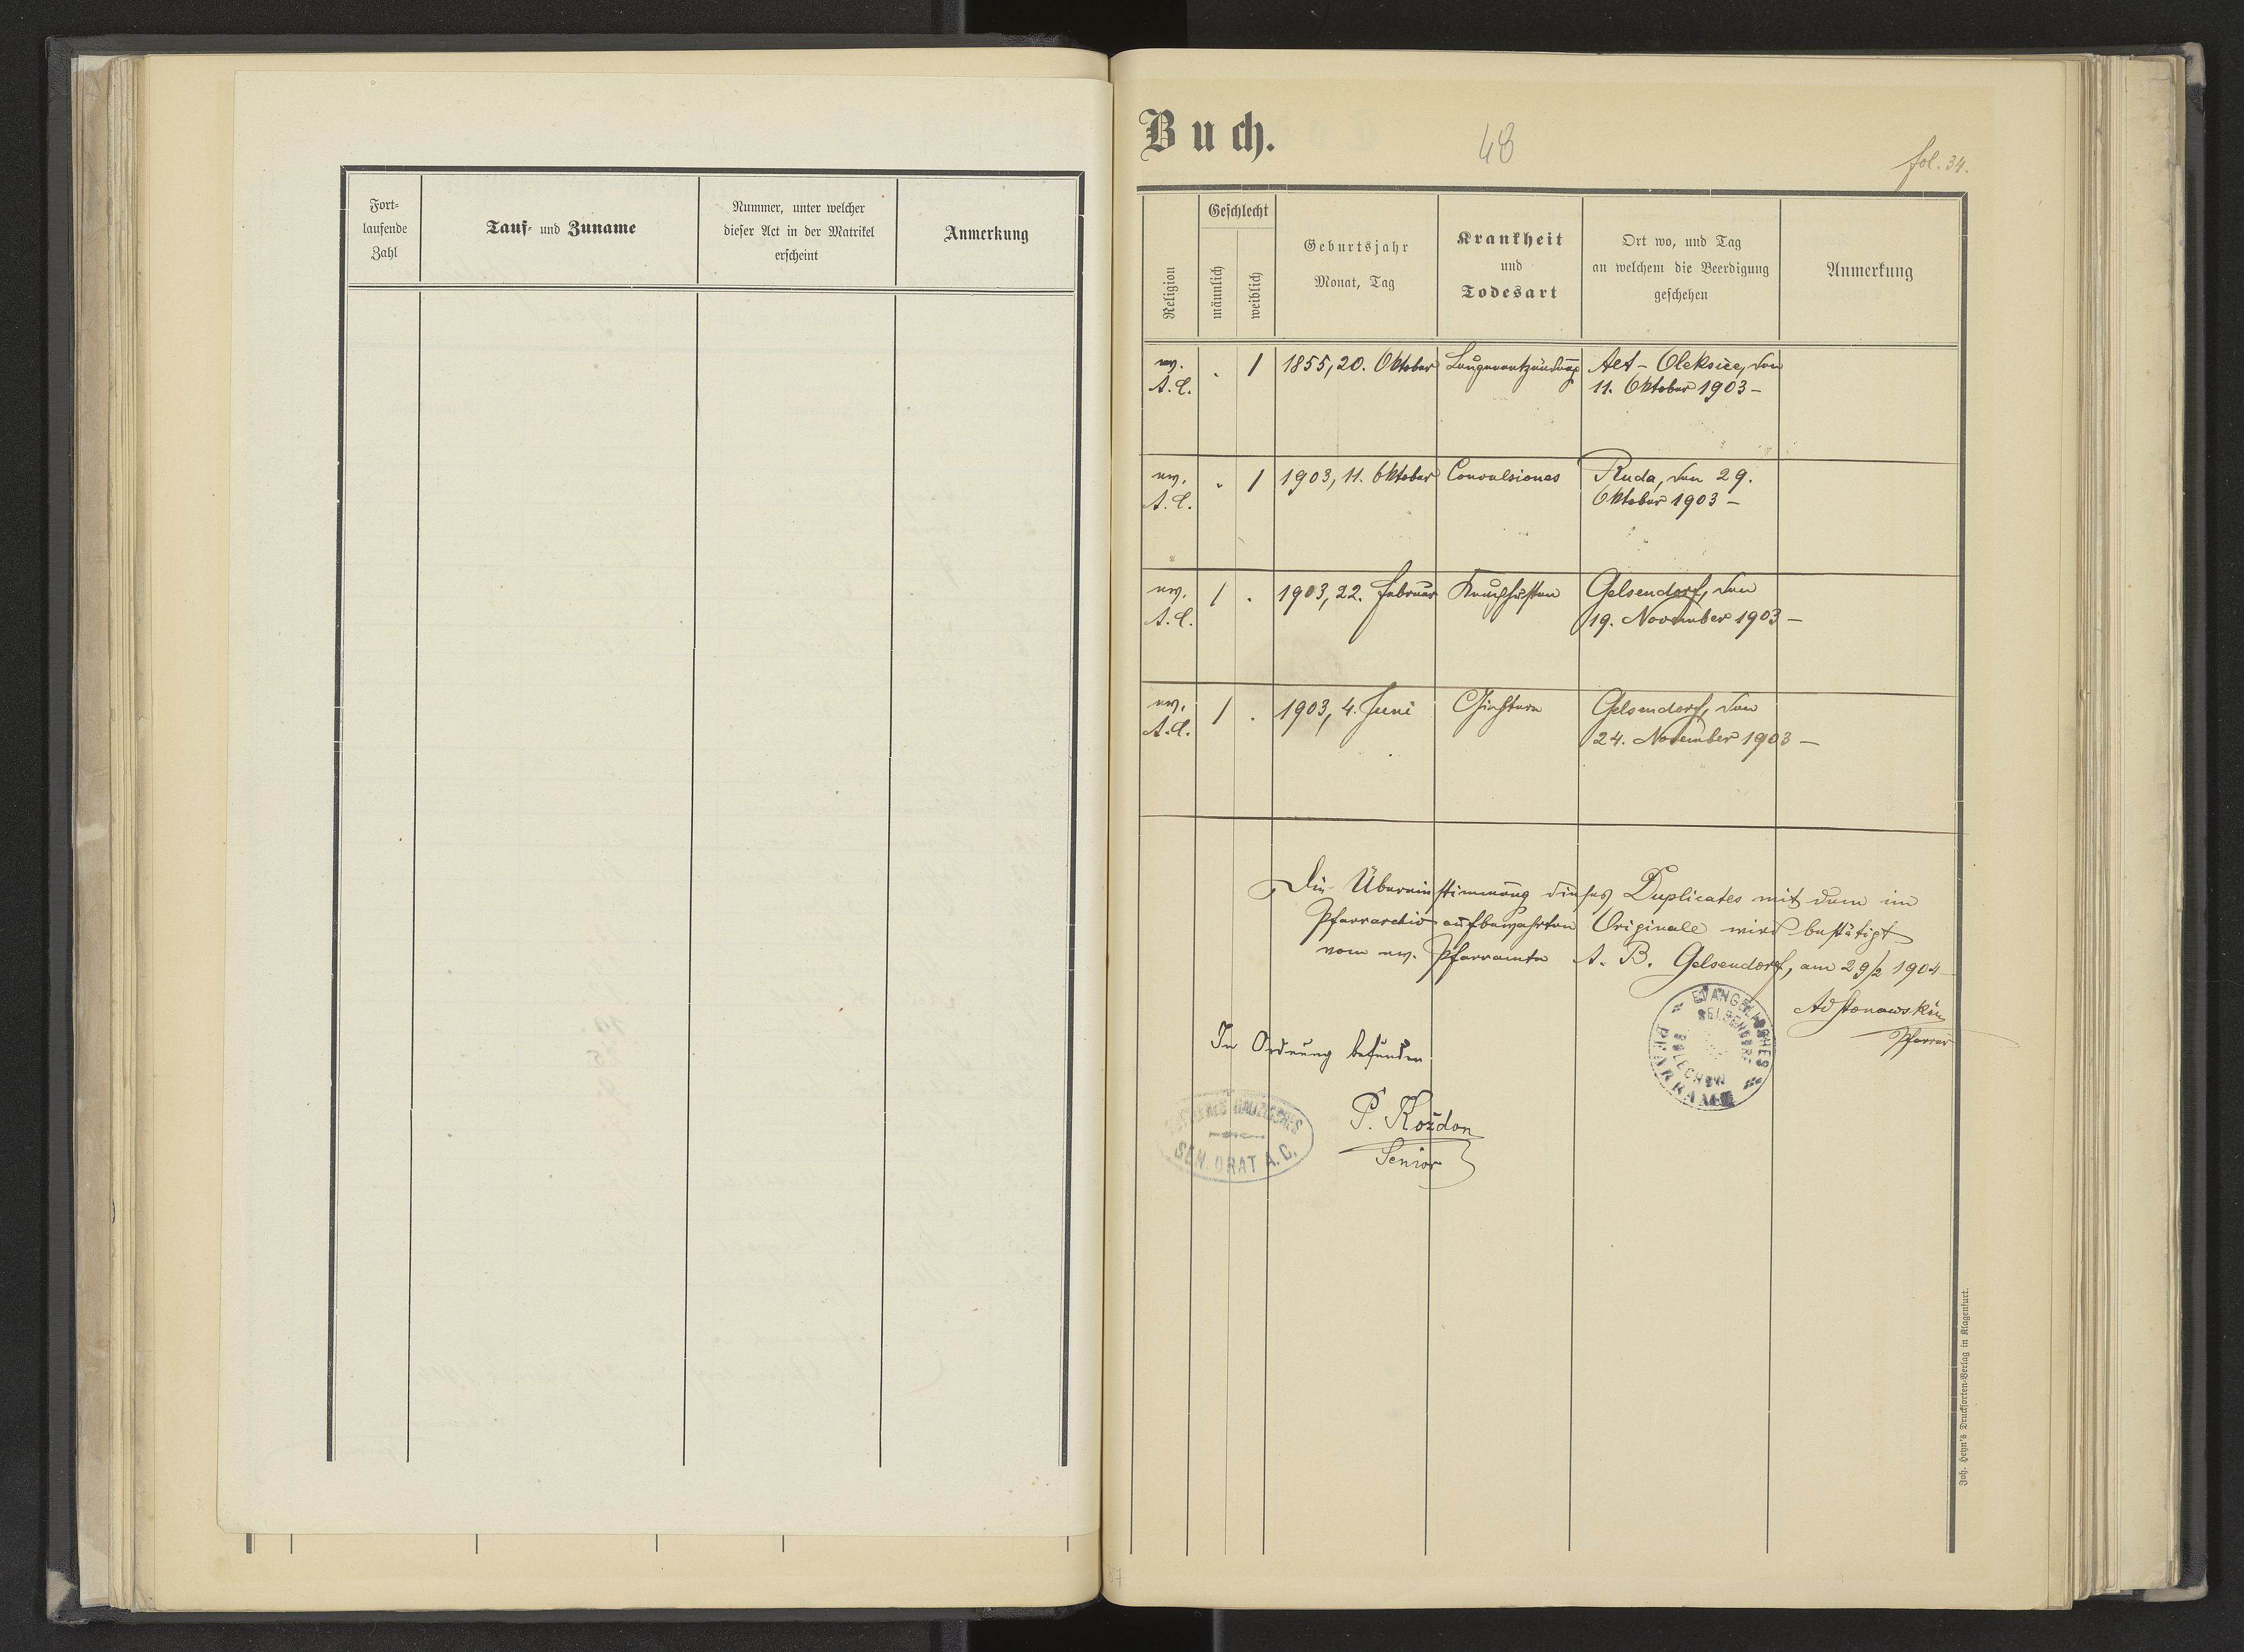 Fort-
laufende
Zahl
Tauf- und Zuname
Nummer, unter welcher
dieser Act in der Matrikel
erscheint
Anmerkung
Buch.
48
fol. 34.
Religion
Geschlecht
männlich
weiblich
Geburtsjahr
Monat, Tag
Krankheit
und
Todesart
Ort wo, und Tag
an welchem die Beerdigung
geschehen
Anmerkung
ev. . 1 1855, 20. Oktober Lungenentzündung Alt-Oleksice, den
A.C. 11. Oktober 1903 –
ev. . 1 1903, 11. Oktober Convulsiones Ruda, den 29.
A.C. Oktober 1903 –
ev. 1 . 1903, 22. Februar Keuchhusten Gelsendorf, den
A.C. 19. November 1903 –
ev. 1 . 1903, 4. Juni Gelsendorf, den
A.C. 24. November 1903 –
Die Übereinstimmung dieses Duplicates mit dem im
Pfarrarchiv aufbewahrten Originale wird bestätigt
vom ev. Pfarramte A. B. Gelsendorf, am 29/2 1904
EVANGELISCHES
PFARRAMT
GELSENDORF
Pfarrer
In Ordnung befunden
P. Kożdon
Senior
GALIZISCHES
SENIORAT A. C.
Joh. Heyn's Drucksorten-Verlag in Klagenfurt.